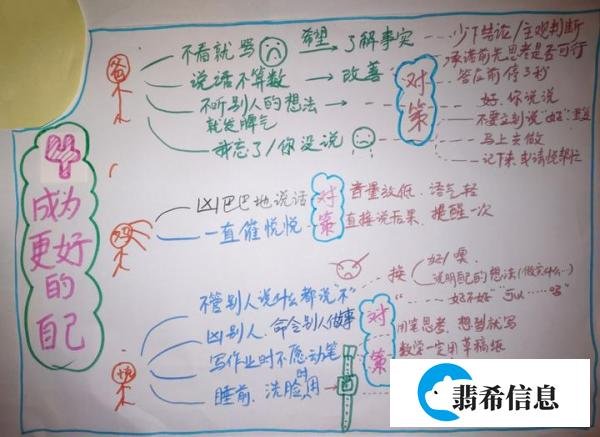 成为
更好
的
自己
爸
不看就骂
希望
了解事实
少下结论/主观判断
说话不算数
改善
对策
承诺前先思考是否可行
答应前停3秒
不听别人的想法
就发脾气
好,你说说
我忘了/你没说
马上去做
记下来或请悦帮忙
妈
凶巴巴地说话
对策
音量放低、语气轻
一直催悦悦
直接说后果,提醒一次
悦
不管别人说什么都说"不"
换
好/噢
说明自己的想法(做完什么…)
"好不好" "可以……吗"
凶别人、命令别人做事
对策
写作业时不愿动笔
用笔思考,想到就写
数学一定用草稿纸
睡前、洗脸时用
翡希信息